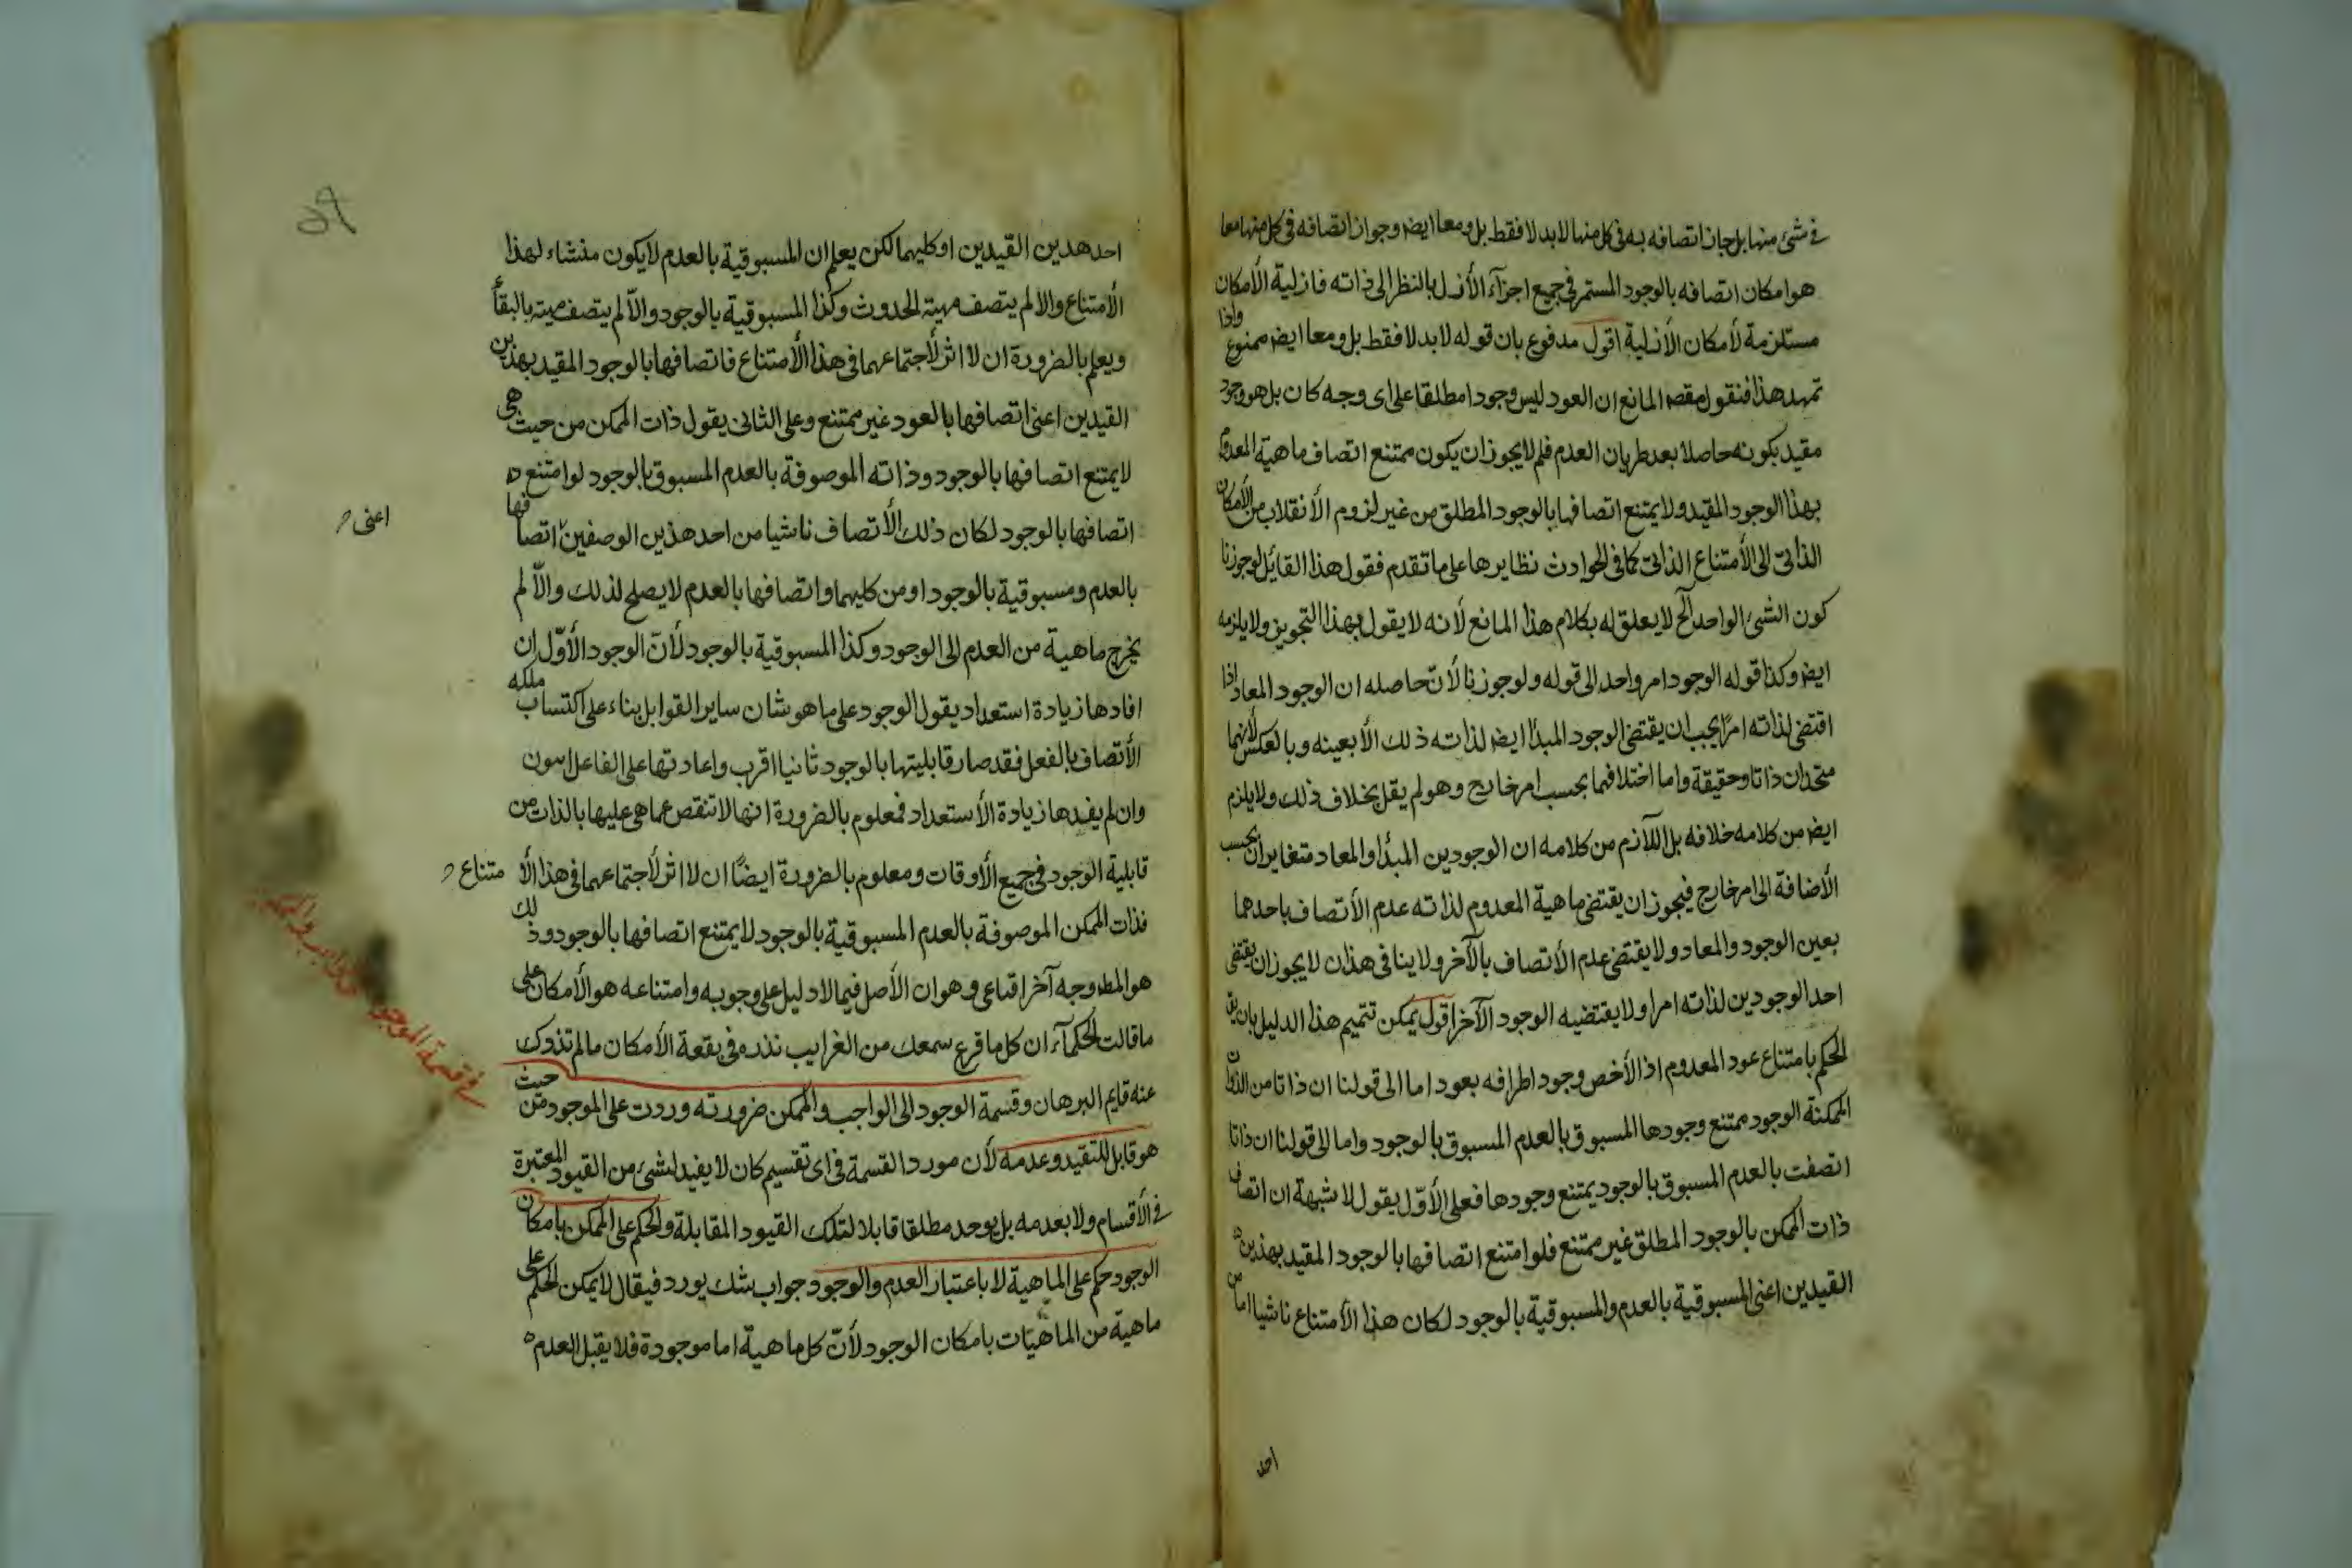 في شئ منها بل جاز اتصافه به في كل منها لا بدلا فقط بل ومعا ايضا وجواز اتصافه في كل منها معا
هو امكان اتصافه بالوجود المستمر في جميع اجزاء الأزل بالنظر الى ذاته فازلية الأمكان
مستلزمة لأمكان الأزلية اقول مدفوع بان قوله لا بدلا فقط بل ومعا ايضا ممنوع واذا
تمهد هذا فنقول مقصد المانع ان العود ليس وجودا مطلقا على اى وجه كان بل هو وجود
مقيد بكونه حاصلا بعد طريان العدم فلم لا يجوز ان يكون ممتنع اتصاف ماهية المعدوم
بهذا الوجود المقيد ولا يمتنع اتصافها بالوجود المطلق من غير لزوم الأنقلاب من الأمكان
الذاتى الى الأمتناع الذاتى كما في الحوادث نظايرها على ما تقدم فقول هذا القايل لو جوزنا
كون الشئ الواحد الخ لا يعلق له بكلام هذا المانع لأنه لا يقول بهذا التجويز ولا يلزمه
ايضا وكذا قوله الوجود امر واحد الى قوله ولو جوزنا لأن حاصله ان الوجود المعاد اذا
اقتضى لذاته امرا يجب ان يقتضى الوجود المبدأ ايضا لذاته ذلك الأبعينه وبالعكس لأنهما
متحدان ذاتا وحقيقة واما اختلافهما بحسب امر خارج وهو لم يقل بخلاف ذلك ولا يلزم
ايضا من كلامه خلافه بل اللازم من كلامه ان الوجودين المبدأ والمعاد متغايران بحسب
الأضافة الى امر خارج فيجوز ان يقتضى ماهية المعدوم لذاته عدم الأتصاف باحدهما
بعين الوجود والمعاد ولا يقتضى عدم الأتصاف بالآخر ولا ينافى هذان لا يجوز ان يقتضى
احد الوجودين لذاته امرا ولا يقتضيه الوجود الآخر اقول يمكن تتميم هذا الدليل بان
الحكم بامتناع عود المعدوم اذ الأخص وجود اطرافه بعود اما الى قولنا ان ذاتا من الذوات
الممكنة الوجود ممتنع وجودها المسبوق بالعدم المسبوق بالوجود واما الى قولنا ان ذاتا
اتصفت بالعدم المسبوق بالوجود يمتنع وجودها فعلى الأوّل يقول لا شبهة ان اتصاف
ذات الممكن بالوجود المطلق غير ممتنع فلو امتنع اتصافها بالوجود المقيد بهذين
القيدين اعنى المسبوقية بالعدم والمسبوقية بالوجود لكان هذا الأمتناع ناشيا اما من
احد
احد هدين القيدين او كليهما لكن يعلم ان المسبوقية بالعدم لا يكون منشاء لهذا
الأمتناع والا لم يتصف مهية الحدوث وكذا المسبوقية بالوجود والاّ لم يتصف مهيته بالبقأ
ويعلم بالضرورة ان لا اثر لأجتماعهما في هذا الأمتناع فاتصافها بالوجود المقيد بهذين
القيدين اعنى اتصافها بالعود غير ممتنع وعلى الثانى يقول ذات الممكن من حيث هى
لا يمتنع اتصافها بالوجود وذاته الموصوفة بالعدم المسبوق بالوجود لو امتنع
اتصافها بالوجود لكان ذلك الأتصاف ناشيا من احد هذين الوصفين اتصافها
اعنى
بالعدم ومسبوقية بالوجود او من كليهما واتصافها بالعدم لا يصلح لذلك والاّ لم
يخرج ماهية من العدم الى الوجود وكذا المسبوقية بالوجود لأن الوجود الأوّل ان
افادها زيادة استعداد يقول الوجود على ما هو شان ساير القوابل بناء على اكتساب ملكه
الأتصاف بالفعل فقد صار قابليتها بالوجود ثانيا اقرب واعادتها على الفاعل اهون
وان لم يفدها زيادة الأستعداد فمعلوم بالضرورة انها لا تنقص عما هى عليها بالذات من
قابلية الوجود في جميع الأوقات ومعلوم بالضرورة ايضًا ان لا اثر لأجتماعهما في هذا الأ متناع
فذات الممكن الموصوفة بالعدم المسبوقية بالوجود لا يمتنع اتصافها بالوجود وذلك
هو المط وجه آخر اقناعى وهو ان الأصل فيما لا دليل على وجوبه وامتناعه هو الأمكان على
ما قالت الحكمآء ان كل ما قرع سمعك من الغرايب نذره في بقعة الأمكان ما لم تذوك
عنه قايم البرهان وقسمة الوجود الى الواجب والممكن ضرورته وردت على الموجود من حيث
هو قابل للتقيد وعدمه لأن مورد القسمة في اى تقسيم كان لا يفيد لشئ من القيود المعتبرة
في الأقسام ولا بعدمه بل يوحد مطلقا قابلا لتلك القيود المقابلة والحكم على الممكن بامكان
الوجود حكم على الماهية لا باعتبار العدم والوجود جواب شك يورد فيقال لا يمكن الحكم على
ماهية من الماهيّات بامكان الوجود لأنّ كل ماهيّة اما موجودة فلا يقبل العدم
في قسمة الموجود